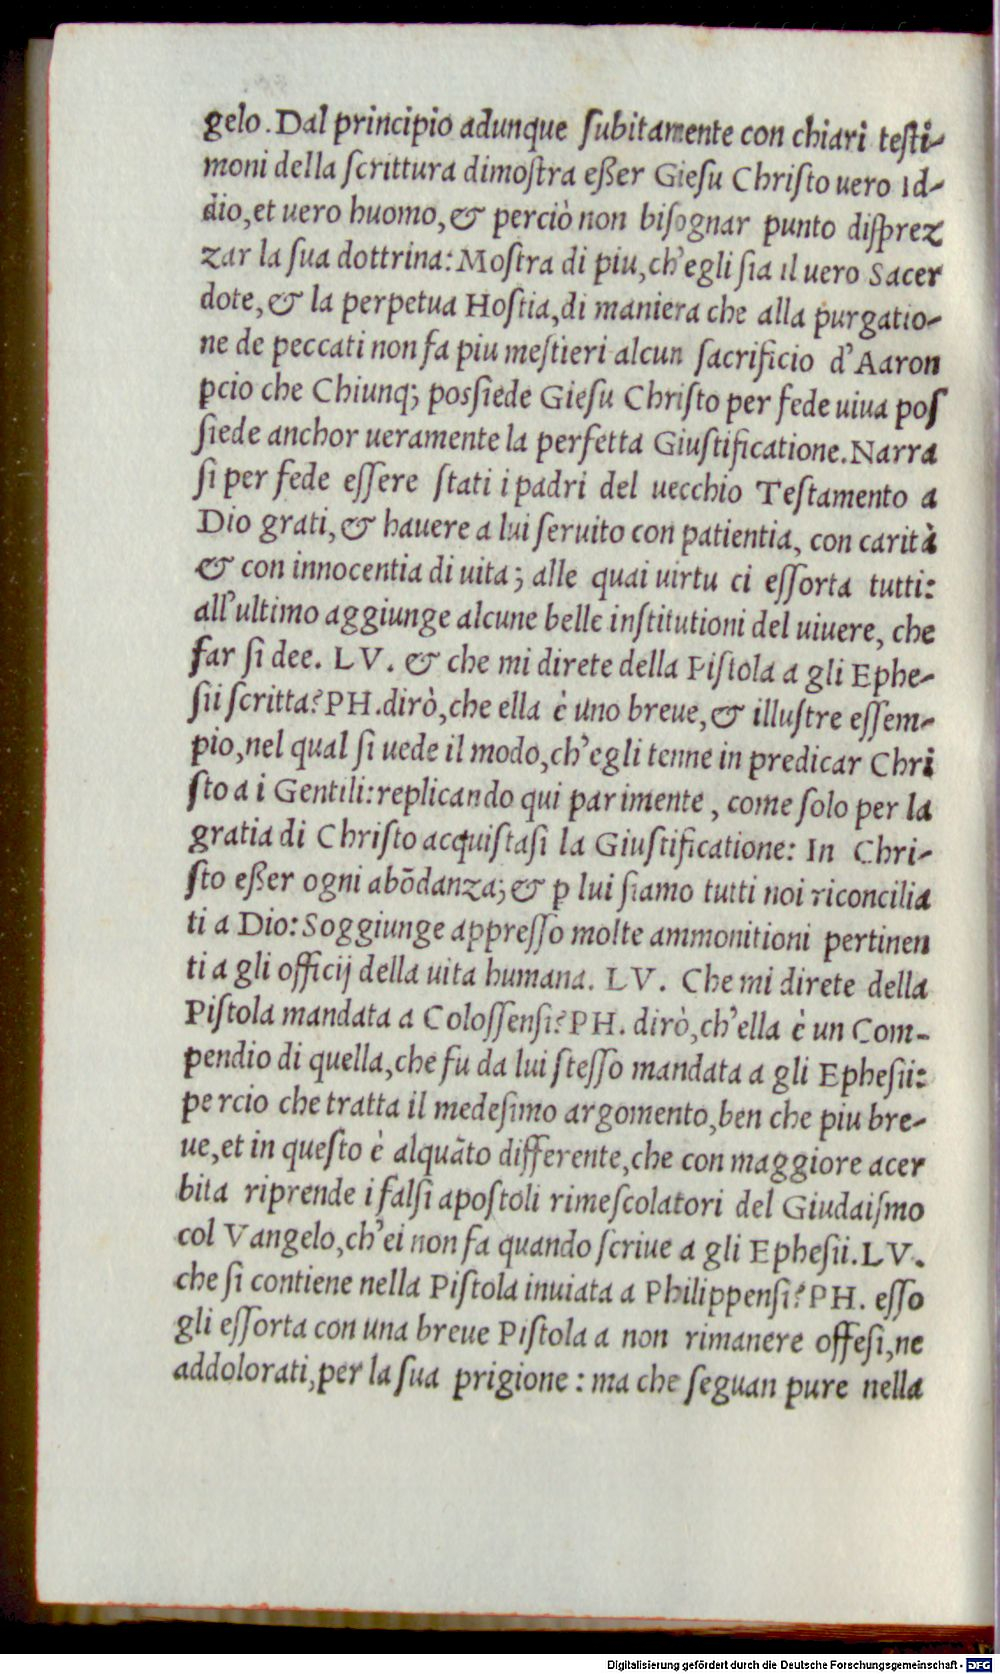 gelo. Dal principio adunque ſubitamente con chiari teſti-
moni della ſcrittura dimoſtra eßer Gieſu Chriſto uero Id-
dio, et uero huomo, & perciò non biſognar punto diſprez
zar la ſua dottrina: Moſtra di piu, ch'egli ſia il uero Sacer
dote, & la perpetua Hoſtia, di maniera che alla purgatio-
ne de peccati non fa piu meſtieri alcun ſacrificio d'Aaron
ꝑcio che Chiunq; poſsiede Gieſu Chriſto per fede uiua poſ
ſiede anchor ueramente la perfetta Giuſtificatione. Narra
ſi per fede eſſere ſtati i padri del uecchio Teſtamento a
Dio grati, & hauere a lui ſeruito con patientia, con carità
& con innocentia di uita; alle quai uirtu ci eſſorta tutti:
all'ultimo aggiunge alcune belle inſtitutioni del uiuere, che
far ſi dee. LV. & che mi direte della Piſtola a gli Ephe-
ſii ſcritta? PH. dirò, che ella è uno breue, & illuſtre eſſem-
pio, nel qual ſi uede il modo, ch'egli tenne in predicar Chri
ſto a i Gentili: replicando qui parimente, come ſolo per la
gratia di Chriſto acquiſtaſi la Giuſtificatione: In Chri-
ſto eßer ogni abõdanza; & ꝑ lui ſiamo tutti noi riconcilia
ti a Dio: Soggiunge appreſſo molte ammonitioni pertinen
ti a gli officij della uita humana. LV. Che mi direte della
Piſtola mandata a Coloſſenſi? PH. dirò, ch'ella è un Com-
pendio di quella, che fu da lui ſteſſo mandata a gli Epheſii:
percio che tratta il medeſimo argomento, ben che piu bre-
ue, et in queſto è alquãto differente, che con maggiore acer
bita riprende i falſi apoſtoli rimeſcolatori del Giudaiſmo
col Vangelo, ch'ei non fa quando ſcriue a gli Epheſii. LV.
che ſi contiene nella Piſtola inuiata a Philippenſi? PH. eſſo
gli eſſorta con una breue Piſtola a non rimanere offeſi, ne
addolorati, per la ſua prigione: ma che ſeguan pure nella
Digitalisierung gefördert durch die Deutsche Forschungsgemeinschaft - DFG